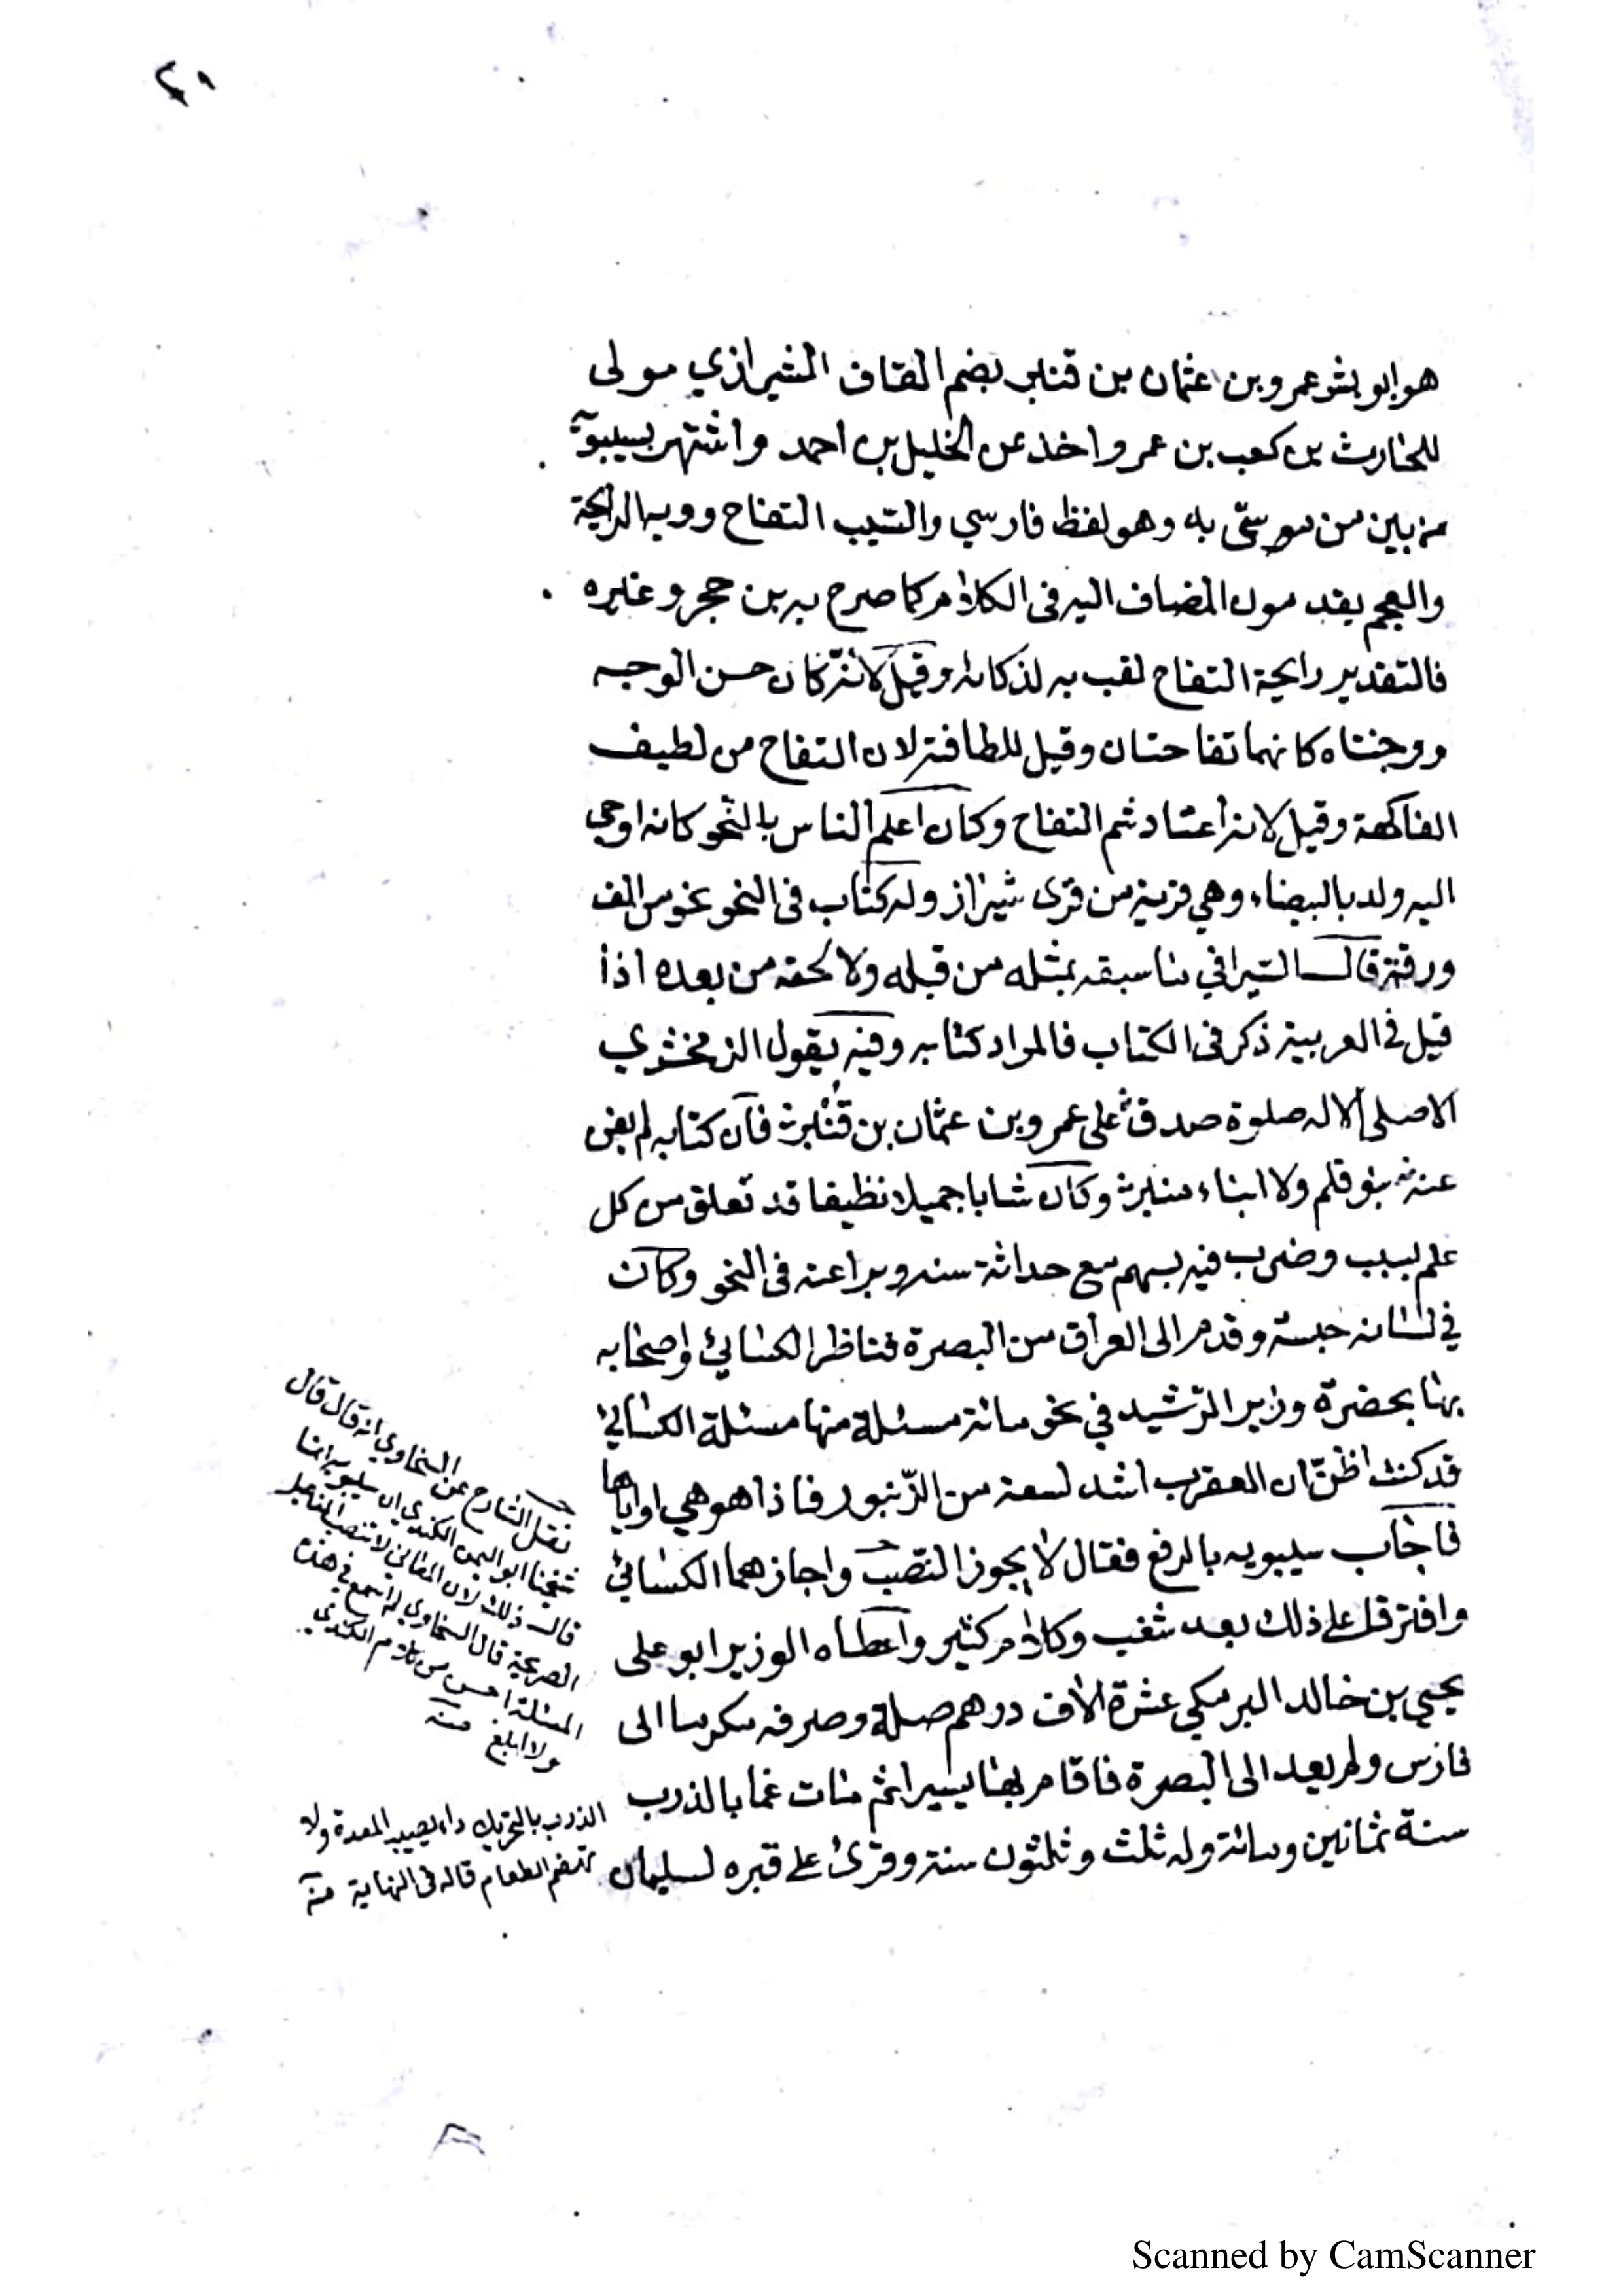 ٢٩
هو ابو بشر عمرو بن عثمان بن قنبر بضم القاف الشيرازي مولى
للحارث بن كعب بن عمرو اخذ عن الخليل بن احمد واشتهر بسيبويه
من بين من سمى به وهو لفظ فارسي والسيب التفاح وويه الرايحة
والعجم يقدمون المضاف اليه فى الكلام كما صرح به بن حجر وغيره
فالتقدير رايحة التفاح لقب به لذكائه وقيل لانه كان حسن الوجه
ووجنتاه كانهما تفاحتان وقيل للطافته لان التفاح من لطيف
الفاكهة وقيل لانه اعتاد شم التفاح وكان اعلم الناس بالنحو كانه اوحى
اليه ولد بالبيضاء وهي قرية من قرى شيراز وله كتاب فى النحو نحو من الف
ورقة قال السيرافي ما سبقه بمثله من قبله ولا لحقه من بعده اذا
قيل في العربية ذكر فى الكتاب فالمراد كتابه وفيه يقول الزمخشري
الا صلى الاله صلوة صدق على عمرو بن عثمان بن قنبر فان كتابه لم يغن
عنه بنو قلم ولا ابناء منبر وكان شابا جميلا نظيفا قد تعلق من كل
علم بسبب وضرب فيه بسهم مع حداثة سنه وبراعته فى النحو وكان
في لسانه حبسة وقدم الى العراق من البصرة فناظر الكسائي واصحابه
بها بحضرة وزير الرشيد في نحو مائة مسئلة منها مسئلة الكسائي
قد كنت اظن ان العقرب اشد لسعة من الزنبور فاذا هو هي او اياها
فاجاب سيبويه بالرفع فقال لا يجوز النصب واجازهما الكسائي
وافترقا على ذلك بعد شغب وكلام كثير واعطاه الوزير ابو على
يحيى بن خالد البرمكي عشرة الاف درهم صلة وصرفه مكرما الى
فارس ولم يعد الى البصرة فاقام بها يسيرا ثم مات غما بالذرب
سنة ثمانين ومائة وله ثلث وثلثون سنة وقرئ على قبره لسليمان
نقل الشارح عن السخاوي انه قال قال
شيخنا ابو اليمن الكندي ان سيبويه انما
قال ذلك لان المعاني لا تنصب المفاعيل
الصريحة قال السخاوي لم اسمع في هذه
المسئلة احسن من كلام الكندي
ولا ابلغ منه
الذرب بالتحريك داء يصيب المعدة ولا
تهضم الطعام قاله فى النهاية منه
Scanned by CamScanner